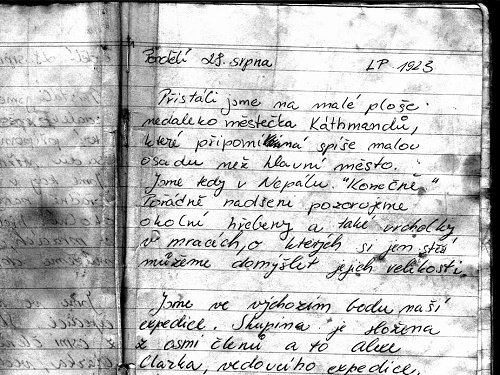 Pondělí 28. srpna LP. 1923
Přistáli jsme na malé ploše
nedaleko městečka Káthmandů,
které připomíná spíše malou
osadu než hlavní město.
Jsme tedy v Nepálu. "Konečně"
Pořádně nadšeni pozorujeme
okolní hřebeny a také vrcholky
v mracích, o kterých si jen stěží
můžeme domýšlet jejich velikosti.
Jsme ve výchozím bodu naší
expedice. Skupina je složena
z osmi členů a to Alex
Clarka, vedoucího expedice,